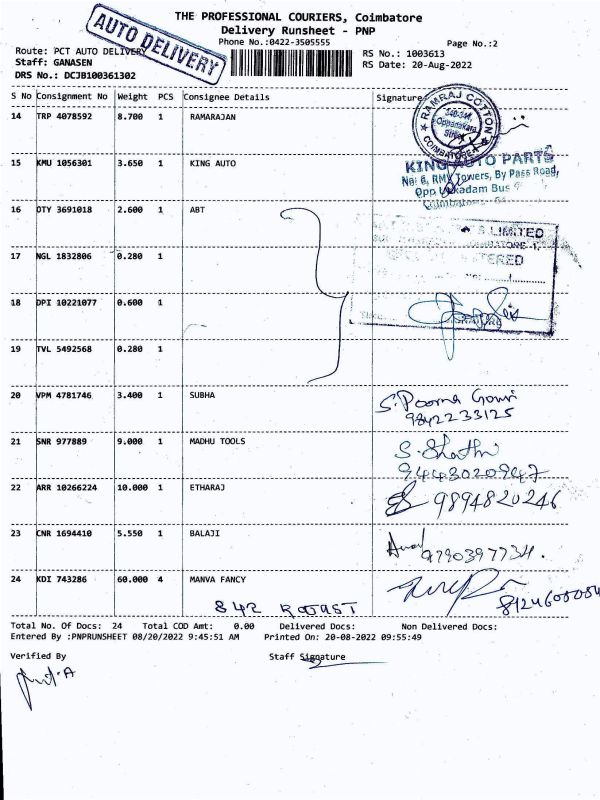 THE PROFESSIONAL COURIERS, Coimbatore
Delivery Runsheet - PNP
Phone No.:0422-3505555
AUTO DELIVERY
Page No.:2
Route: PCT AUTO DELIVERY
RS No.: 1003613
Staff: GANASEN
RS Date: 20-Aug-2022
DRS No.: DCJB100361302
S No Consignment No Weight PCS Consignee Details Signature
14 TRP 4078592 8.700 1 RAMARAJAN
RAMRAJ COTTON
Oppanakara
Street
COIMBATORE
15 KMU 1056301 3.650 1 KING AUTO
KING AUTO PARTS
No: 6, RMY Towers, By Pass Road,
Opp Ukkadam Bus
Coimbatore
16 OTY 3691018 2.600 1 ABT
LIMITED
17 NGL 1832806 0.280 1
18 DPI 10221077 0.600 1
19 TVL 5492568 0.280 1
20 VPM 4781746 3.400 1 SUBHA
S. Poorna Gowri
9842233125
21 SNR 977889 9.000 1 MADHU TOOLS
9443020947
22 ARR 10266224 10.000 1 ETHARAJ
9894820246
23 CNR 1694410 5.550 1 BALAJI
9790397734.
24 KDI 743286 60.000 4 MANVA FANCY
842
Total No. Of Docs: 24 Total COD Amt: 0.00 Delivered Docs: Non Delivered Docs:
Entered By :PNPRUNSHEET 08/20/2022 9:45:51 AM Printed On: 20-08-2022 09:55:49
Verified By Staff Signature